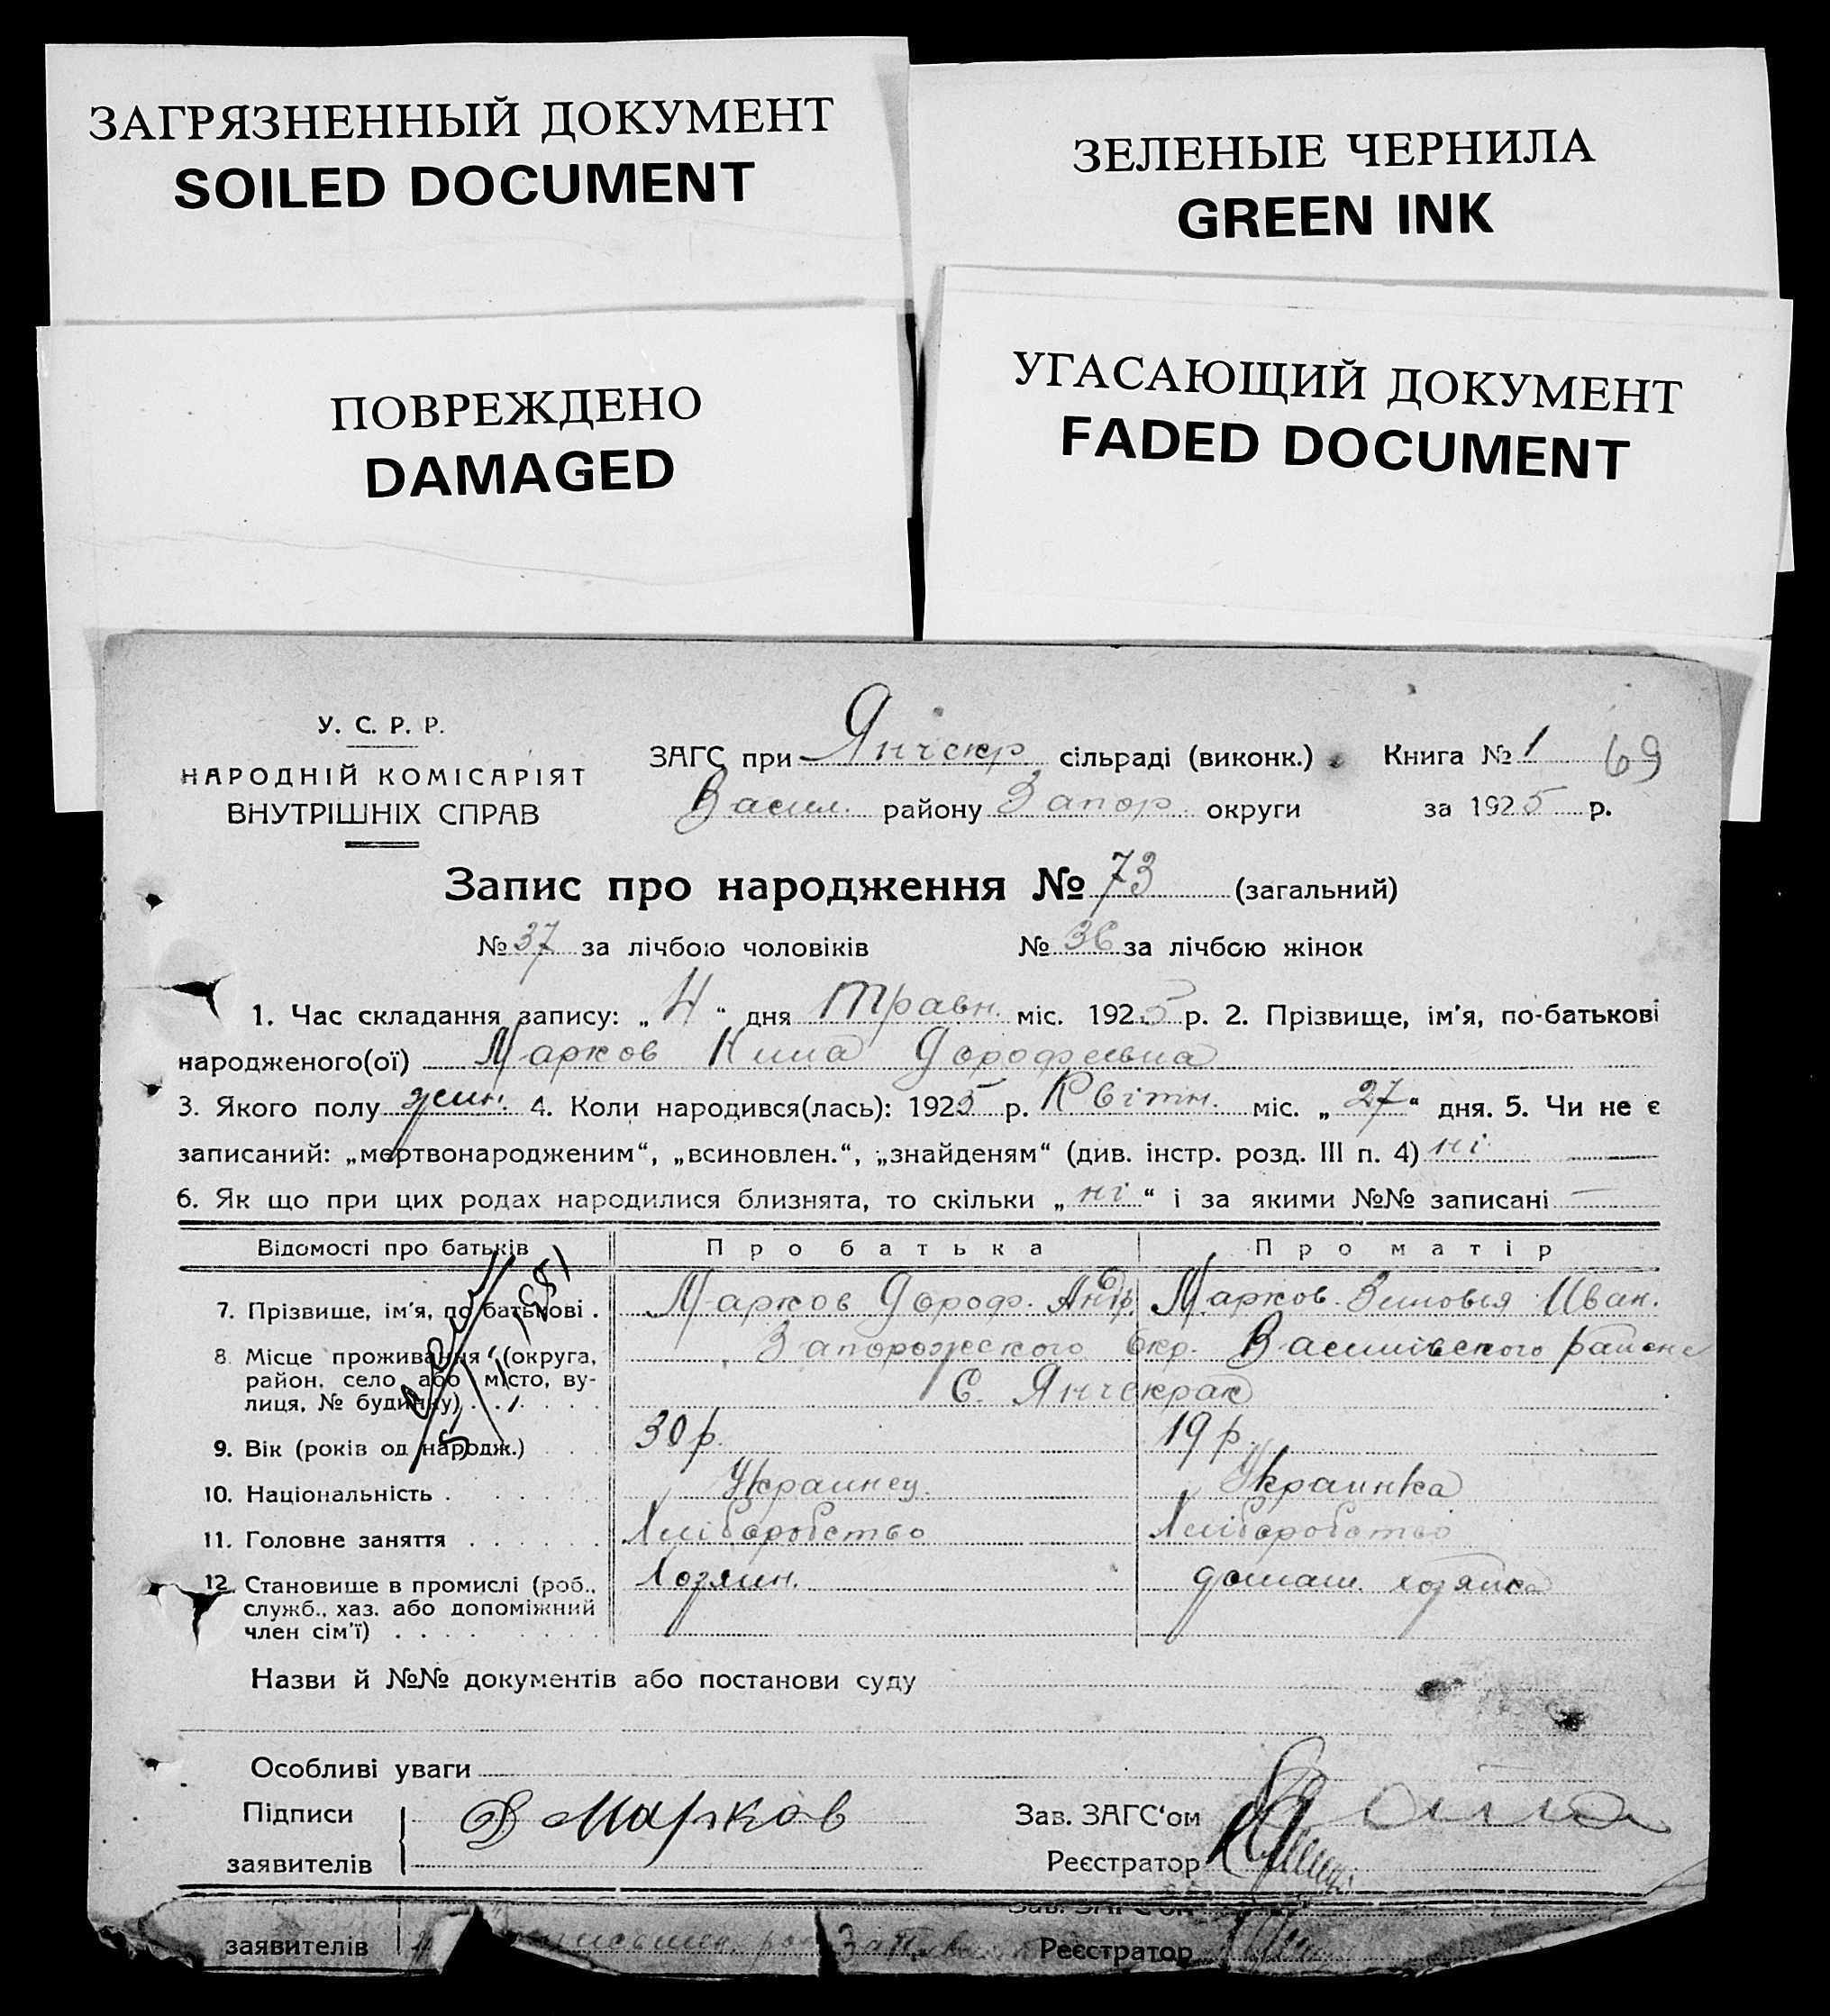 ЗАГРЯЗНЕННЫЙ ДОКУМЕНТ
SOILED DOCUMENT
ЗЕЛЕНЫЕ ЧЕРНИЛА
GREEN INK
ПОВРЕЖДЕНО
DAMAGED
УГАСАЮЩИЙ ДОКУМЕНТ
FADED DOCUMENT
У. С. Р. Р.
НАРОДНІЙ КОМІСАРІЯТ
ВНУТРІШНІХ СПРАВ
ЗАГС при Янчекр. сільраді (виконк.) Книга № 1 69
Васил. району Запор. округи за 1925 р.
Запис про народження № 73 (загальний)
№ 37 за лічбою чоловіків № 36 за лічбою жінок
1. Час складання запису: „4“ дня Травн. міс. 1925 р. 2. Прізвище, ім'я, по-батькові
народженого(ої) Марков Кима Дорофеевна
3. Якого полу жин. 4. Коли народився(лась): 1925 р. Квітн. міс. „27“ дня. 5. Чи не є
записаний: „мертвонародженим“, „всиновлен.“, „знайденям“ (див. інстр. розд. III п. 4) ні
6. Як що при цих родах народилися близнята, то скільки „ні“ і за якими №№ записані —
Відомості про батьків Про батька Про матір
7. Прізвище, ім'я, по батькові . Марков Дороф. Андр. Марков Зиновья Иван.
8. Місце проживання (округа, Запорожского Окр. Василівского района
район, село або місто, ву- С. Янчекрак
лиця, № будинку)
9. Вік (років од народж.) 30 р. 19 р.
10. Національність . Украинец. Украинка
11. Головне заняття Хліборобство Хліборобство
12. Становище в промислі (роб., Хозяин. домаш. хозяйка
служб., хаз. або допоміжний
член сім'ї)
Назви й №№ документів або постанови суду
Особливі уваги
Підписи Д Марков Зав. ЗАГС'ом
заявителів Реєстратор
Зав. ЗАГС'ом
заявителів Реєстратор